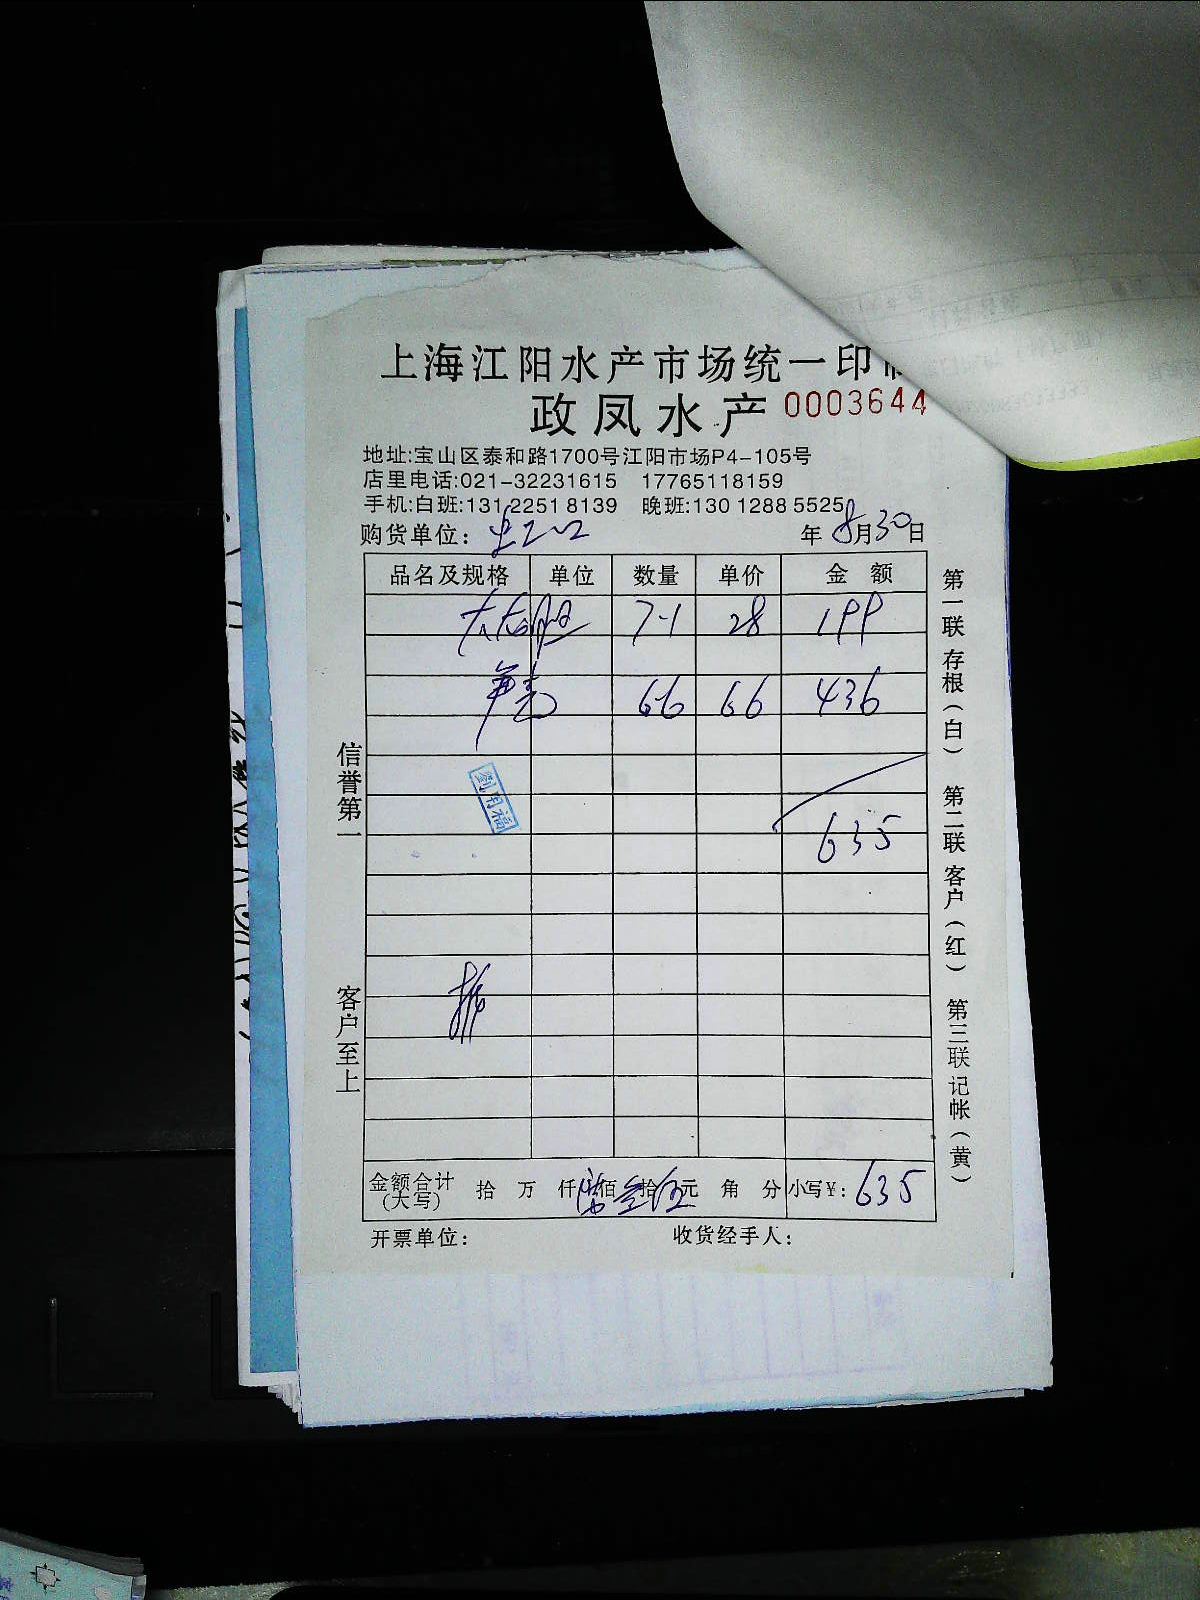 上海江阳水产市场统一印
政凤水产 0003644
地址:宝山区泰和路1700号江阳市场P4-105号
店里电话:021-32231615 17765118159
手机:白班:131 2251 8139 晚班:130 1288 5525
购货单位: 年 8月30日
品名及规格 单位 数量 单价 金额
7-1 28 199
6-6 66 436
635
金额合计(大写) 拾 万 仟 佰 叁拾伍元 角 分 小写¥: 635
开票单位: 收货经手人:
信誉第一
客户至上
第一联 存根(白) 第二联 客户(红) 第三联 记帐(黄)